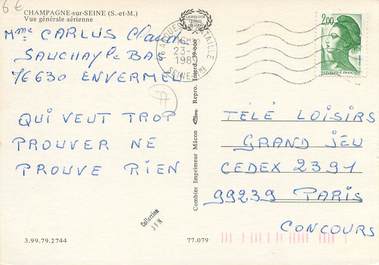 6€
CHAMPAGNE-sur-SEINE (S.-et-M.)
Vue générale aérienne
Mme CARLUS Claude
SAUCHAY le BAS
76630 ENVERMEU
QUI VEUT TROP
PROUVER NE
PROUVE RIEN
23-
SEINE
2,00
TÉLÉ LOISIRS
GRAND JEU
CEDEX 2391
99239 PARIS
CONCOURS
Combier Imprimeur Mâcon
Repro.
Collection
3.99.79.2744
77.079